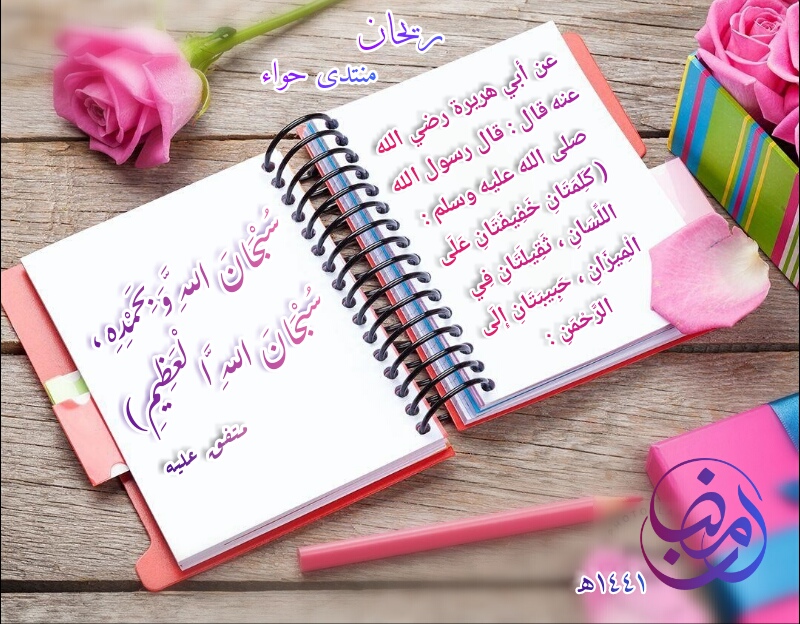 ريحان
منتدى حواء
عن أبي هريرة رضي الله
عنه قال : قال رسول الله
صلى الله عليه وسلم :
(كَلِمَتَانِ خَفِيفَتَانِ عَلَى
اللِّسَانِ ، ثَقِيلَتَانِ فِي
الْمِيزَانِ ، حَبِيبَتَانِ إِلَى
الرَّحْمَنِ :
سُبْحَانَ اللهِ وَبِحَمْدِهِ ،
سُبْحَانَ اللهِ الْعَظِيمِ)
متفق عليه
رمضان
١٤٤١هـ